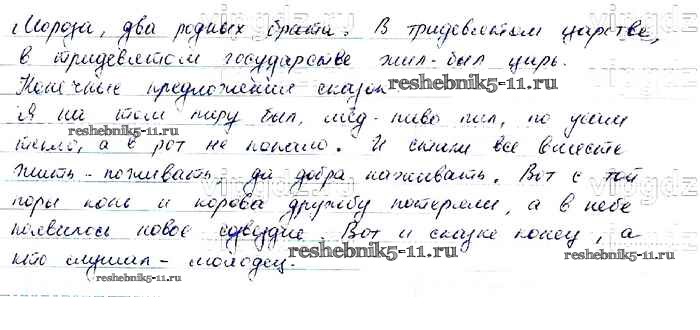 Мороза, два родных брата. В тридевятом царстве,
в тридевятом государстве жил-был царь.
Конечные предложения сказок
Я на том пиру был, мёд-пиво пил, по усам
текло, а в рот не попало. И стали все вместе
жить-поживать, да добра наживать. Вот с той
поры конь и корова дружбу потеряли, а в небе
появилось новое созвездие. Вот и сказке конец, а
кто слушал - молодец.
virgdz
virgdz
reshebnik5-11.ru
reshebnik5-11.ru
virgdz
virgdz
reshebnik5-11.ru
reshebnik5-11.ru
reshebnik5-11.ru